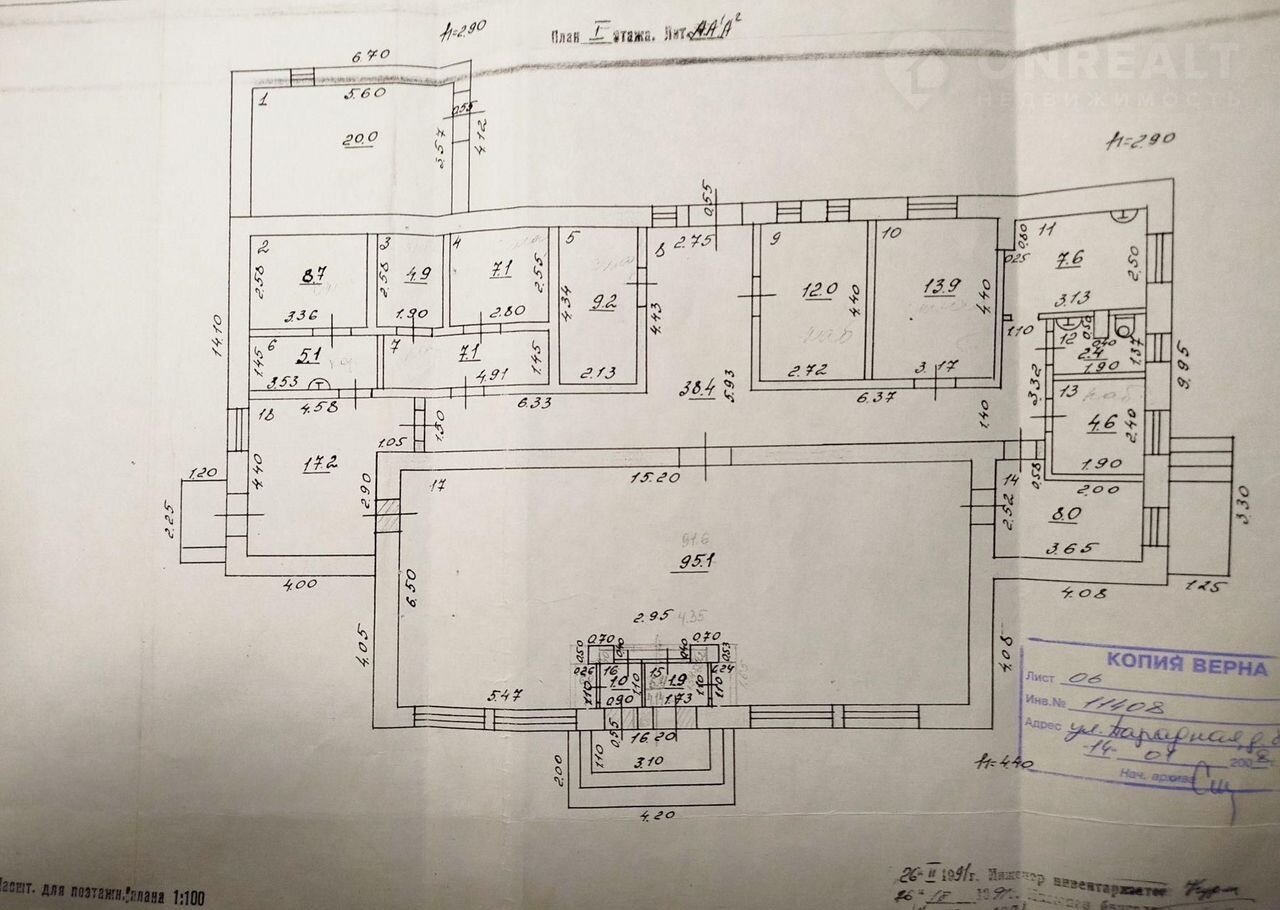 План I этажа. Лит. АА¹А²
h=2.90
ONREALT
НЕДВИЖИМОСТЬ
6.70
1
5.60
20.0
3.57
0.55
4.12
h=2.90
14.10
2
8.7
2.58
3.36
3
4.9
2.58
1.90
4
7.1
2.55
2.80
5
9.2
4.34
2.13
8
2.75
0.55
4.43
38.4
5.93
9
12.0
4.40
2.72
10
13.9
4.40
3.17
11
0.80
0.25
7.6
2.50
3.13
1.10
6
5.1
1.45
3.53
7
7.1
1.45
4.91
6.33
6.37
1.40
12
0.50
0.40
2.4
1.37
1.90
3.32
9.95
13
4.6
2.40
1.90
18
4.58
1.05
1.50
17.2
4.40
2.90
1.20
2.25
4.00
17
15.20
91.6
95.1
6.50
2.95
4.35
14
0.58
2.00
2.52
8.0
3.65
4.08
3.30
1.25
4.05
4.05
5.47
0.50
0.70
0.40
0.40
0.70
0.53
0.26
1.10
16
1.0
0.90
1.10
15
1.9
1.73
1.10
0.24
1.10
0.55
16.20
1.10
3.10
2.00
4.20
h=4.40
КОПИЯ ВЕРНА
Лист 06
Инв.№ 11408
Адрес ул. Парадная, д.
14 07 2008г.
Нач. архива
Масшт. для поэтажн. плана 1:100
26 II 1991г. Инженер инвентаризатор
26 1991г.